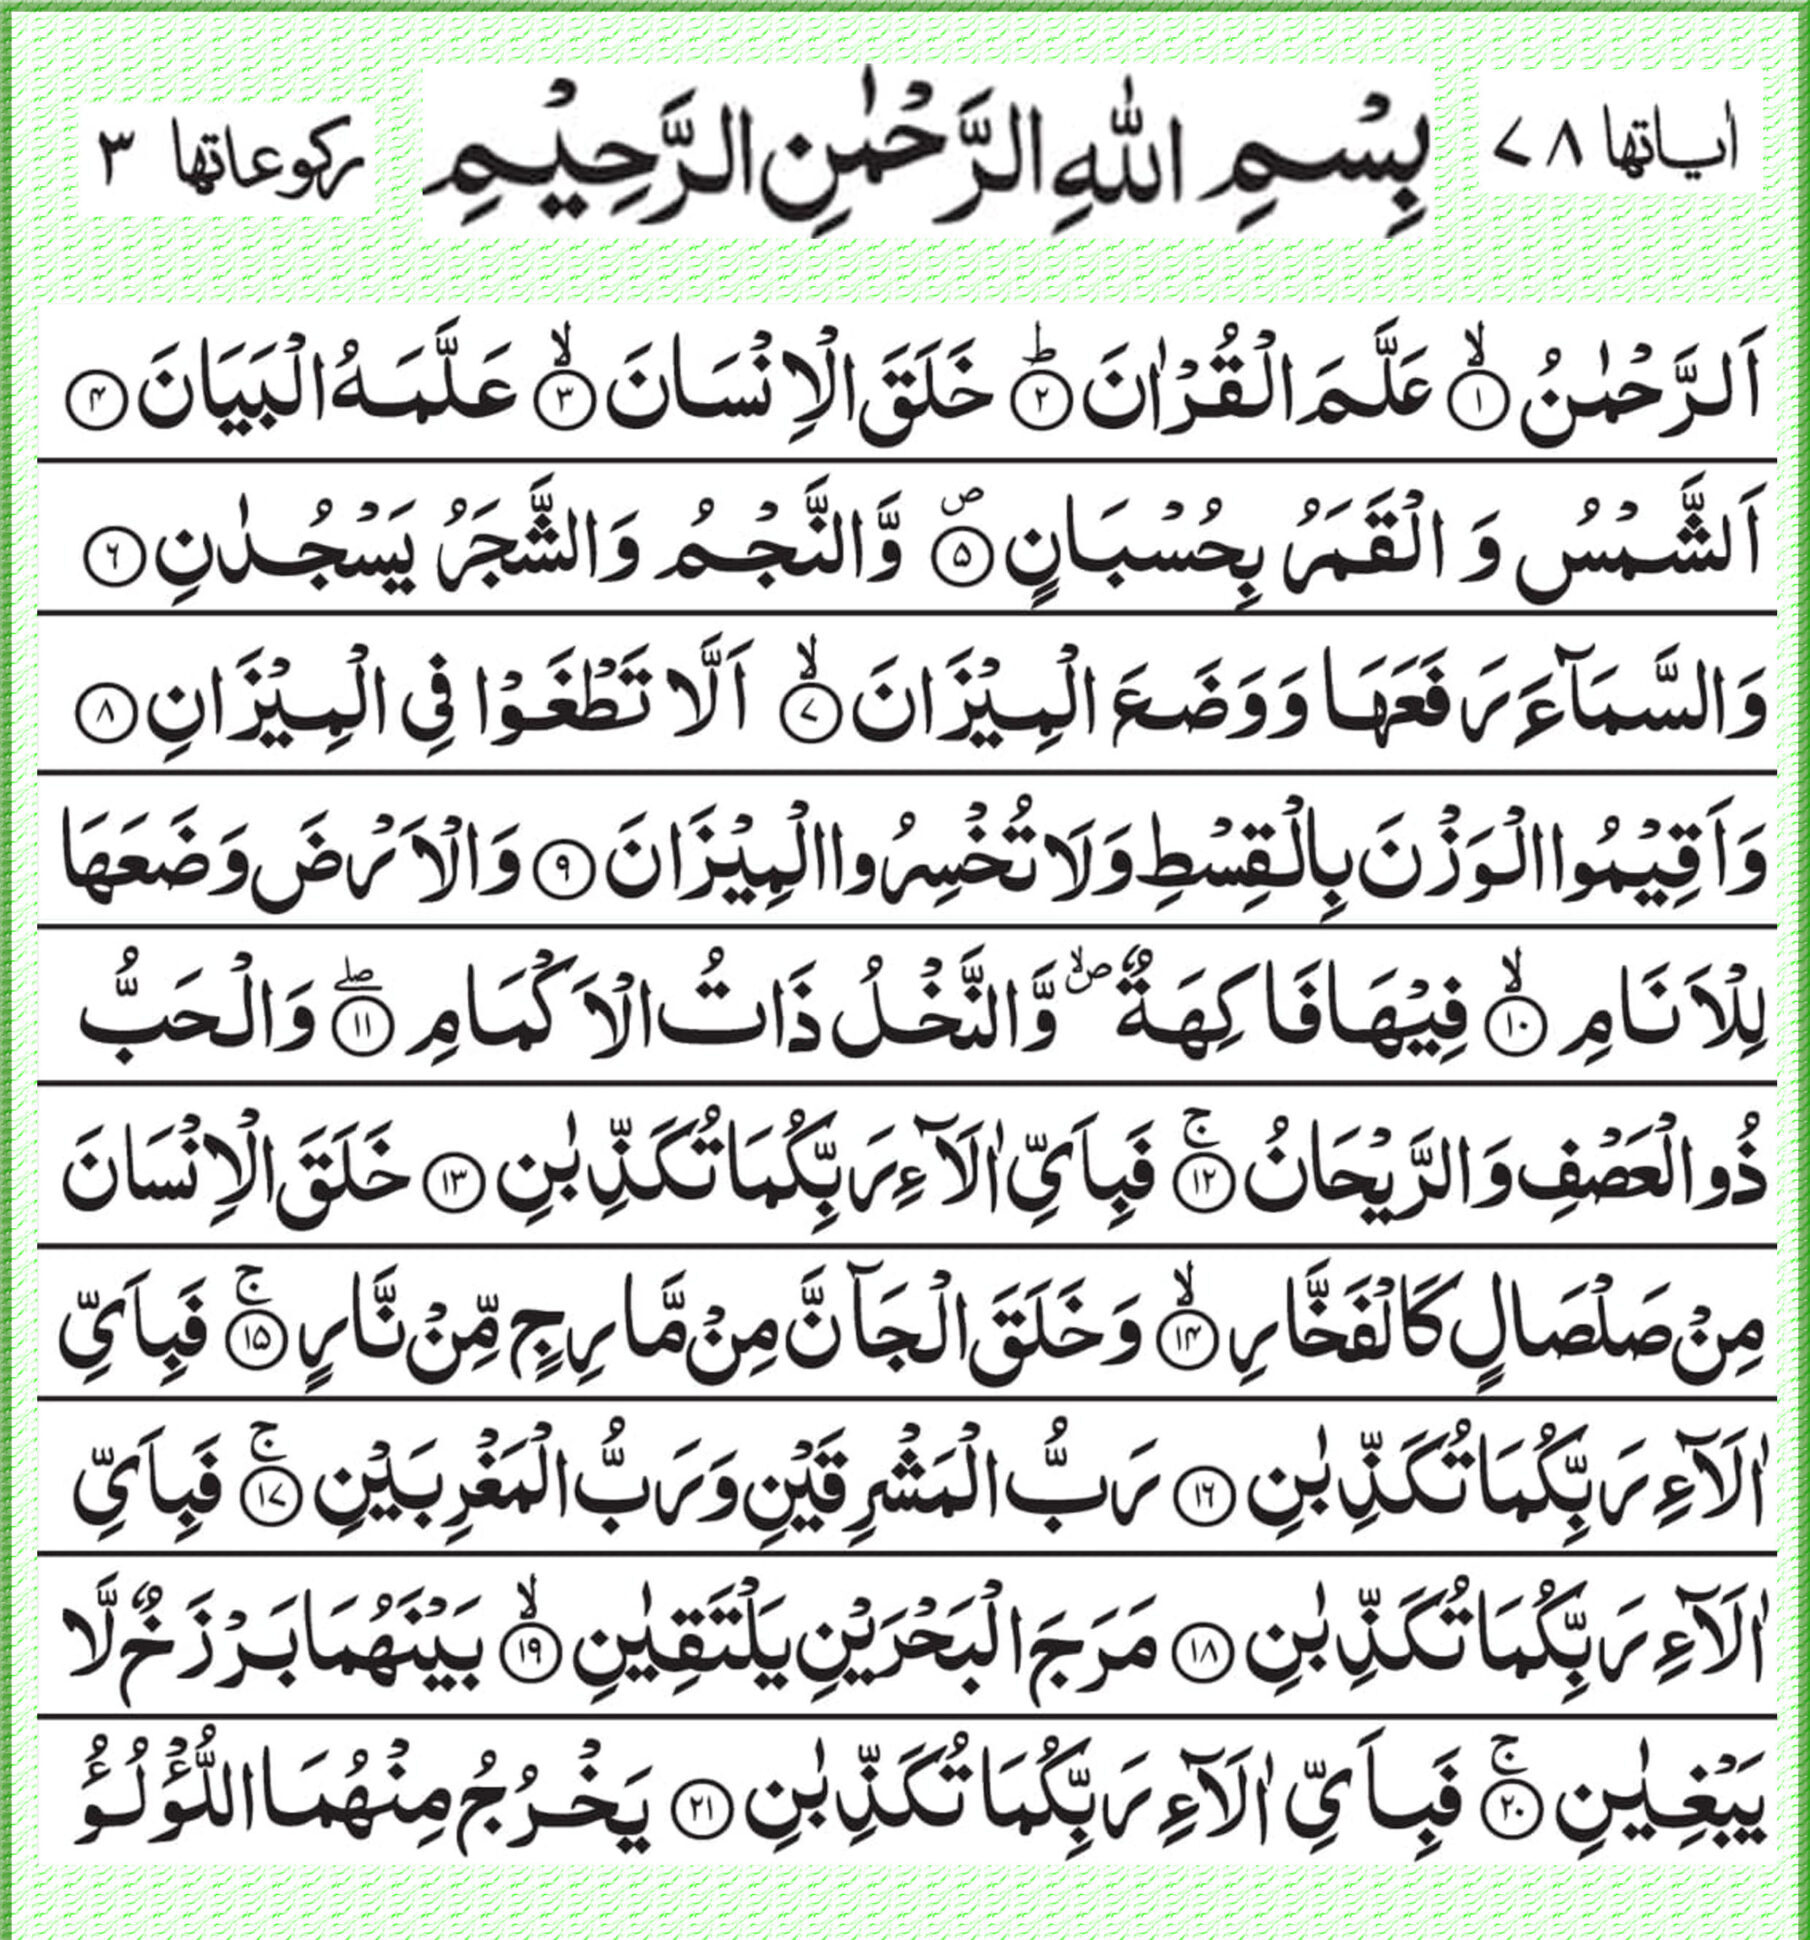 اٰیاتها ٧٨ بِسْمِ اللّٰهِ الرَّحْمٰنِ الرَّحِیْمِ ركوعاتها ٣
اَلرَّحْمٰنُ ۙ﴿۱﴾ عَلَّمَ الْقُرْاٰنَ ؕ﴿۲﴾ خَلَقَ الْاِنْسَانَ ۙ﴿۳﴾ عَلَّمَهُ الْبَیَانَ ﴿۴﴾
اَلشَّمْسُ وَ الْقَمَرُ بِحُسْبَانٍ ۪﴿۵﴾ وَّالنَّجْمُ وَالشَّجَرُ یَسْجُدٰنِ ﴿۶﴾
وَالسَّمَآءَ رَفَعَهَا وَوَضَعَ الْمِیْزَانَ ۙ﴿۷﴾ اَلَّا تَطْغَوْا فِی الْمِیْزَانِ ﴿۸﴾
وَاَقِیْمُوا الْوَزْنَ بِالْقِسْطِ وَلَا تُخْسِرُوا الْمِیْزَانَ ﴿۹﴾ وَالْاَرْضَ وَضَعَهَا
لِلْاَنَامِ ۙ﴿۱۰﴾ فِیْهَا فَاكِهَةٌ ۪ۙ وَّالنَّخْلُ ذَاتُ الْاَكْمَامِ ۖ﴿۱۱﴾ وَالْحَبُّ
ذُو الْعَصْفِ وَالرَّیْحَانُ ۚ﴿۱۲﴾ فَبِاَیِّ اٰلَآءِ رَبِّكُمَا تُكَذِّبٰنِ ﴿۱۳﴾ خَلَقَ الْاِنْسَانَ
مِنْ صَلْصَالٍ كَالْفَخَّارِ ۙ﴿۱۴﴾ وَخَلَقَ الْجَآنَّ مِنْ مَّارِجٍ مِّنْ نَّارٍ ۚ﴿۱۵﴾ فَبِاَیِّ
اٰلَآءِ رَبِّكُمَا تُكَذِّبٰنِ ﴿۱۶﴾ رَبُّ الْمَشْرِقَیْنِ وَرَبُّ الْمَغْرِبَیْنِ ۚ﴿۱۷﴾ فَبِاَیِّ
اٰلَآءِ رَبِّكُمَا تُكَذِّبٰنِ ﴿۱۸﴾ مَرَجَ الْبَحْرَیْنِ یَلْتَقِیٰنِ ۙ﴿۱۹﴾ بَیْنَهُمَا بَرْزَخٌ لَّا
یَبْغِیٰنِ ۚ﴿۲۰﴾ فَبِاَیِّ اٰلَآءِ رَبِّكُمَا تُكَذِّبٰنِ ﴿۲۱﴾ یَخْرُجُ مِنْهُمَا اللُّؤْلُؤُ